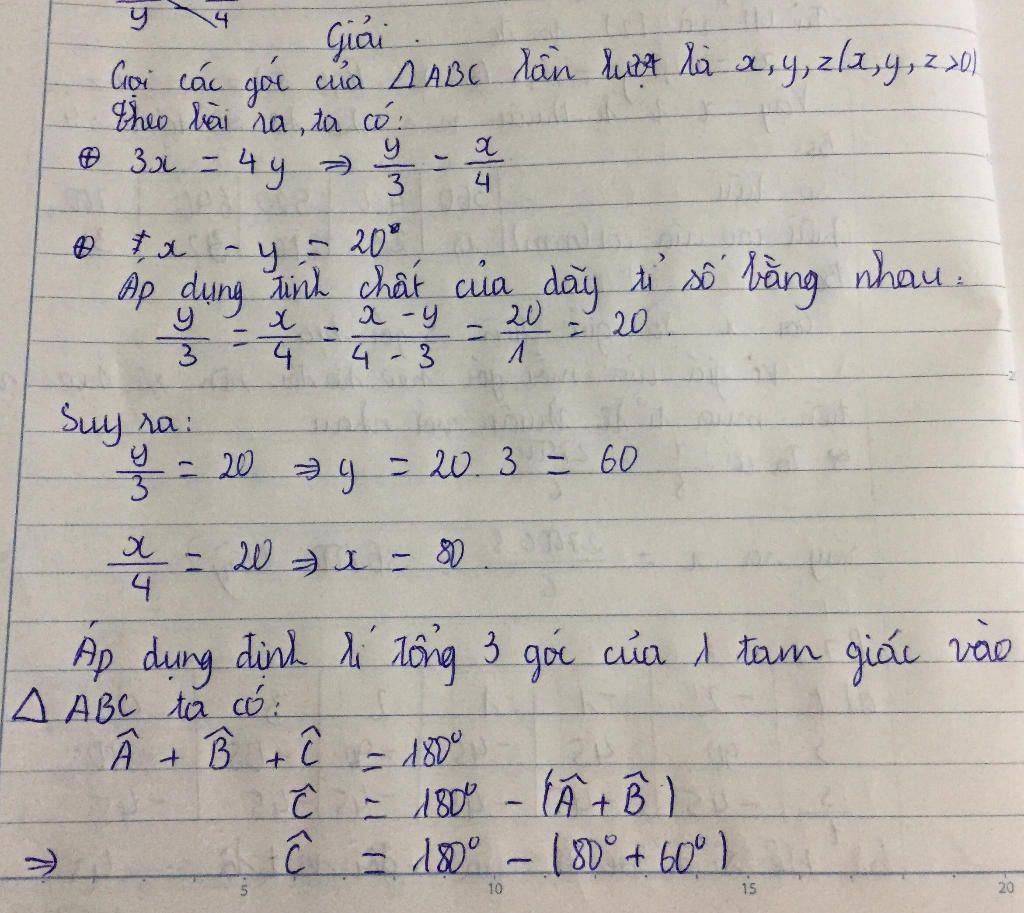 y 4
Giải.
Gọi các góc của △ABC lần lượt là x, y, z (x, y, z >0)
theo bài ra, ta có:
⊕ 3x = 4y ⇒ y/3 = x/4
⊕ x - y = 20°
Áp dụng tính chất của dãy tỉ số bằng nhau:
y/3 = x/4 = x - y/4 - 3 = 20/1 = 20.
Suy ra:
y/3 = 20 ⇒ y = 20. 3 = 60
x/4 = 20 ⇒ x = 80.
Áp dụng định lí tổng 3 góc của 1 tam giác vào
△ ABC ta có:
Â + B̂ + Ĉ = 180°
Ĉ = 180° - (Â + B̂)
⇒ Ĉ = 180° - (80° + 60°)
5 10 15 20